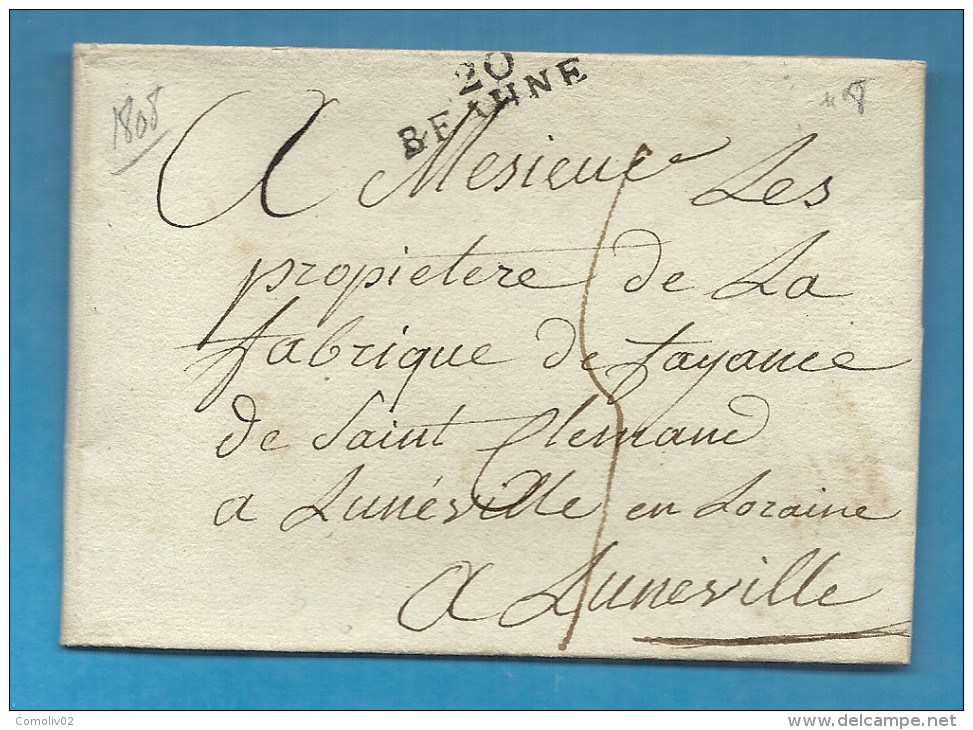 1808
20
BEAUNE
A Mesieur Les
propietere de La
fabrique de fayance
de Saint Clemand
a Lunéville en Loraine
A Luneville
Comoliv02
www.delcampe.net